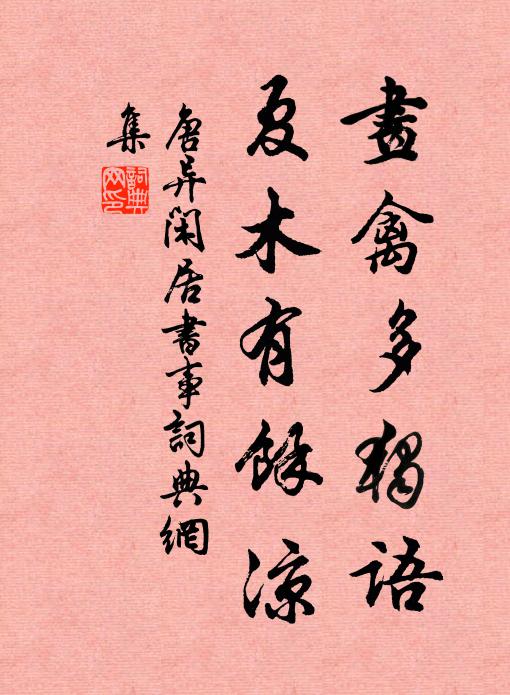 晝禽多獨語
夏木有餘涼
唐异閑居書事詞典網
集
詞典網印